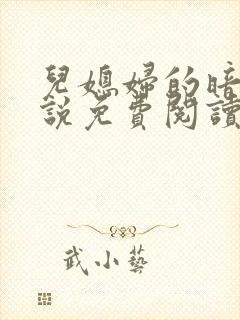 兒媳婦的暗
說免費閱讀
武小藝